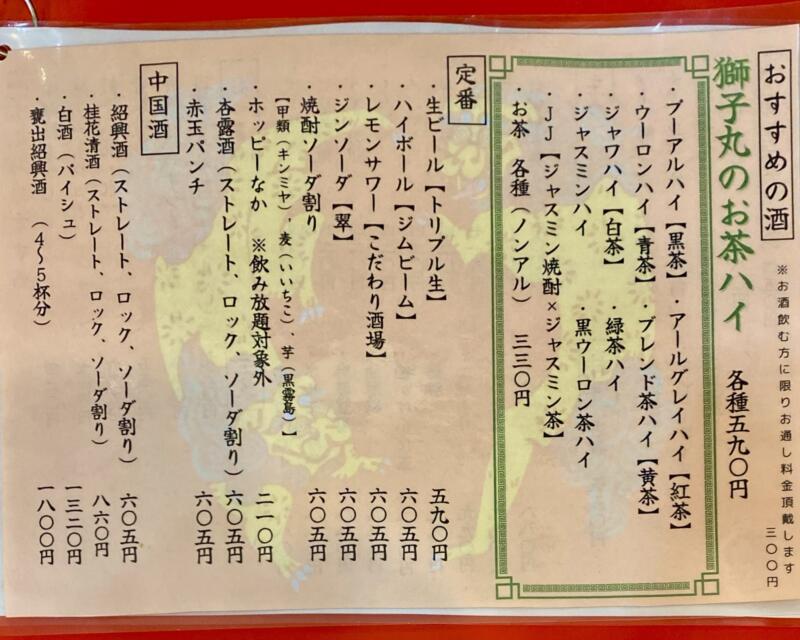 おすすめの酒
※お酒飲む方に限りお通し料金頂戴します
三〇〇円
獅子丸のお茶ハイ 各種五九〇円
・プーアルハイ【黒茶】・アールグレイハイ【紅茶】
・ウーロンハイ【青茶】・ブレンド茶ハイ【黄茶】
・ジャワハイ【白茶】・緑茶ハイ
・ジャスミンハイ ・黒ウーロン茶ハイ
・JJ【ジャスミン焼酎×ジャスミン茶】
・お茶 各種(ノンアル) 三三〇円
定番
・生ビール【トリプル生】 五九〇円
・ハイボール【ジムビーム】 六〇五円
・レモンサワー【こだわり酒場】 六〇五円
・ジンソーダ【翠】 六〇五円
・焼酎ソーダ割り 六〇五円
【甲類(キンミヤ)、麦(いいちこ)、芋(黒霧島)】
・ホッピーなか ※飲み放題対象外 二一〇円
・杏露酒(ストレート、ロック、ソーダ割り) 六〇五円
・赤玉パンチ 六〇五円
中国酒
・紹興酒(ストレート、ロック、ソーダ割り) 六〇五円
・桂花清酒(ストレート、ロック、ソーダ割り) 八六〇円
・白酒(バイシュ) 一三二〇円
・甕出紹興酒 (4〜5杯分) 一八〇〇円